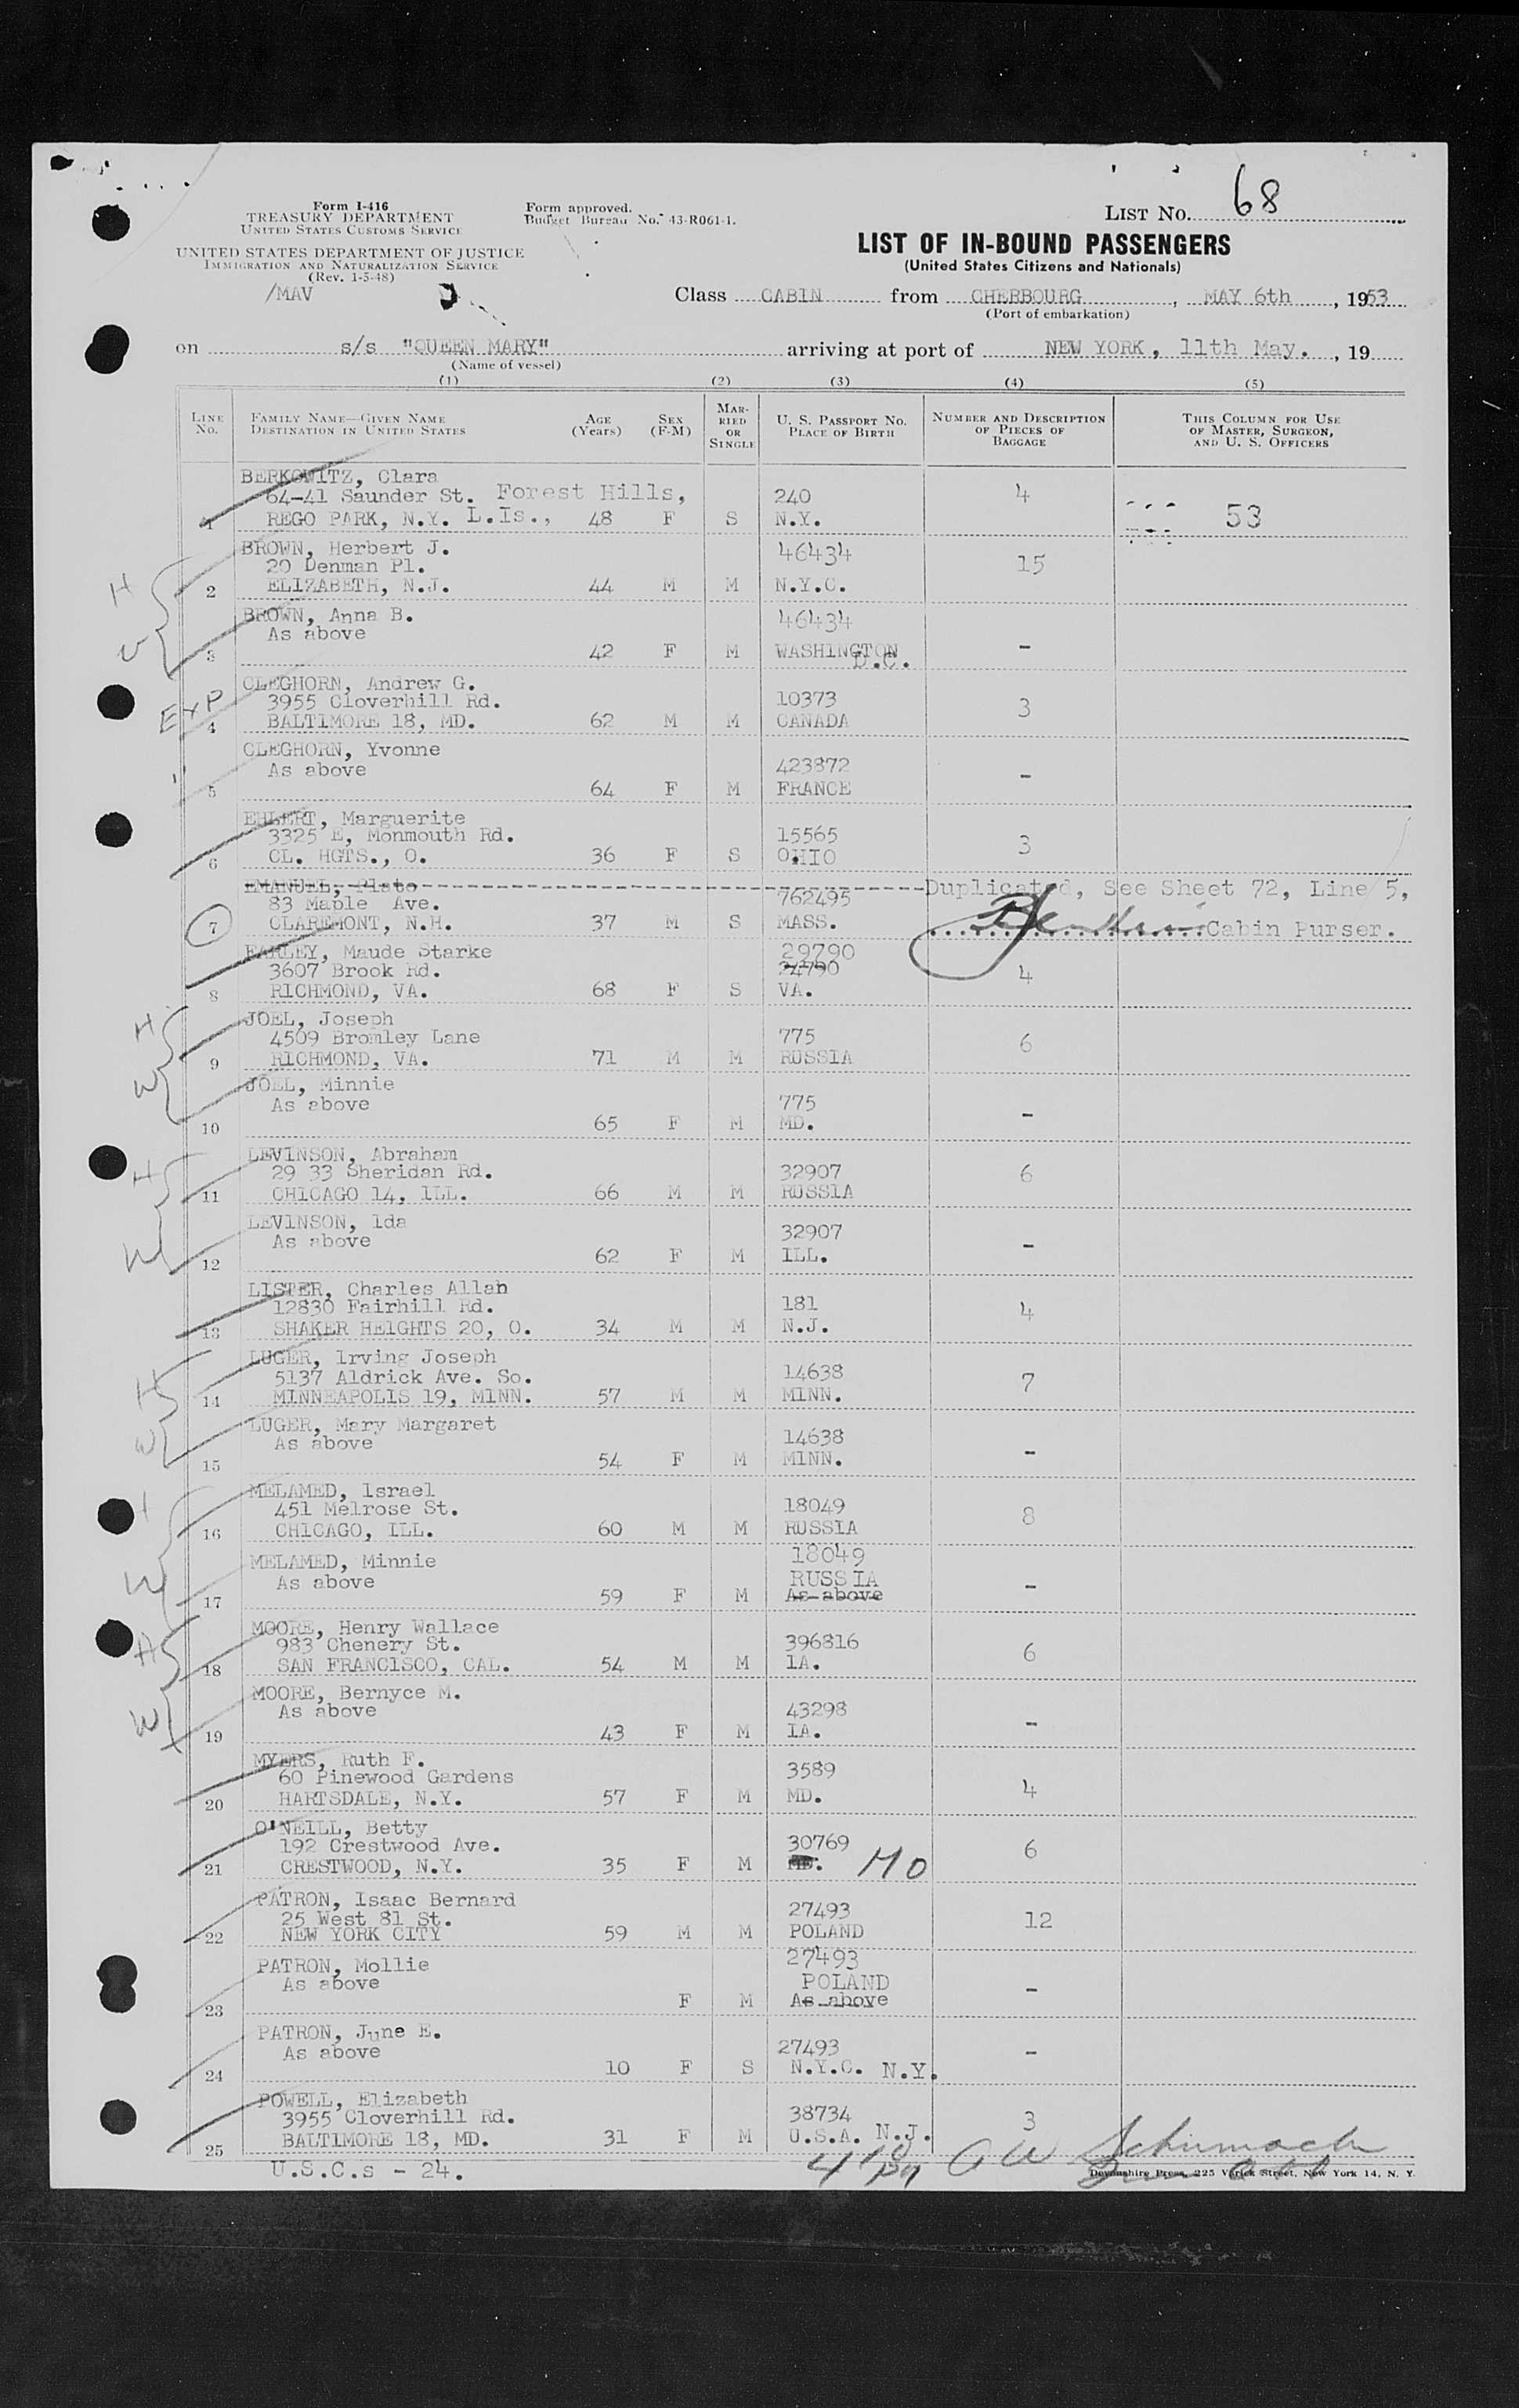 68
Form I-416
TREASURY DEPARTMENT
UNITED STATES CUSTOMS SERVICE
UNITED STATES DEPARTMENT OF JUSTICE
IMMIGRATION AND NATURALIZATION SERVICE
(Rev. 1-5-48)
/MAV
Form approved.
Budget Bureau No. 43-R061-1.
LIST No.
LIST OF IN-BOUND PASSENGERS
(United States Citizens and Nationals)
Class CABIN from CHERBOURG, MAY 6th, 1953
(Port of embarkation)
on s/s "QUEEN MARY" arriving at port of NEW YORK, 11th May., 19
(Name of vessel)
(1) (2) (3) (4) (5)
LINE No. FAMILY NAME—GIVEN NAME DESTINATION IN UNITED STATES AGE (Years) SEX (F-M) MARRIED OR SINGLE U. S. PASSPORT No. PLACE OF BIRTH NUMBER AND DESCRIPTION OF PIECES OF BAGGAGE THIS COLUMN FOR USE OF MASTER, SURGEON, AND U. S. OFFICERS
BERKOWITZ, Clara
64-41 Saunder St. Forest Hills, 240 4
1 REGO PARK, N.Y. L.Is., 48 F S N.Y. 53
BROWN, Herbert J. 46434
H 20 Denman Pl. 15
2 ELIZABETH, N.J. 44 M M N.Y.C.
BROWN, Anna B. 46434
W As above
3 42 F M WASHINGTON D.C. -
CLEGHORN, Andrew G.
EXP 3955 Cloverhill Rd. 10373 3
4 BALTIMORE 18, MD. 62 M M CANADA
CLEGHORN, Yvonne
" As above 423872
5 64 F M FRANCE -
EHLERT, Marguerite
3325 E, Monmouth Rd. 15565 3
6 CL. HGTS., O. 36 F S OHIO
EMANUEL, Plato Duplicated, See Sheet 72, Line 5,
83 Maple Ave. 762495
7 CLAREMONT, N.H. 37 M S MASS. Cabin Purser.
EARLEY, Maude Starke 29790
3607 Brook Rd. 24790 4
8 RICHMOND, VA. 68 F S VA.
JOEL, Joseph
H 4509 Bromley Lane 775 6
9 RICHMOND, VA. 71 M M RUSSIA
JOEL, Minnie
W As above 775
10 65 F M MD. -
LEVINSON, Abraham
H 29 33 Sheridan Rd. 32907 6
11 CHICAGO 14, ILL. 66 M M RUSSIA
LEVINSON, Ida
W As above 32907
12 62 F M ILL. -
LISTER, Charles Allan
12830 Fairhill Rd. 181 4
13 SHAKER HEIGHTS 20, O. 34 M M N.J.
LUGER, Irving Joseph
H 5137 Aldrick Ave. So. 14638 7
14 MINNEAPOLIS 19, MINN. 57 M M MINN.
LUGER, Mary Margaret
W As above 14638
15 54 F M MINN. -
MELAMED, Israel
H 451 Melrose St. 18049 8
16 CHICAGO, ILL. 60 M M RUSSIA
MELAMED, Minnie 18049
W As above RUSSIA
17 59 F M As above -
MOORE, Henry Wallace
H 983 Chenery St. 396816 6
18 SAN FRANCISCO, CAL. 54 M M IA.
MOORE, Bernyce M.
W As above 43298
19 43 F M IA. -
MYERS, Ruth F.
60 Pinewood Gardens 3589 4
20 HARTSDALE, N.Y. 57 F M MD.
O'NEILL, Betty
192 Crestwood Ave. 30769 6
21 CRESTWOOD, N.Y. 35 F M MO
PATRON, Isaac Bernard
25 West 81 St. 27493 12
22 NEW YORK CITY 59 M M POLAND
PATRON, Mollie 27493
As above POLAND
23 F M As above -
PATRON, June E.
As above 27493
24 10 F S N.Y.C. N.Y. -
POWELL, Elizabeth
3955 Cloverhill Rd. 38734 3
25 BALTIMORE 18, MD. 31 F M U.S.A. N.J.
U.S.C.s - 24.
Devonshire Press, 225 Varick Street, New York 14, N. Y.